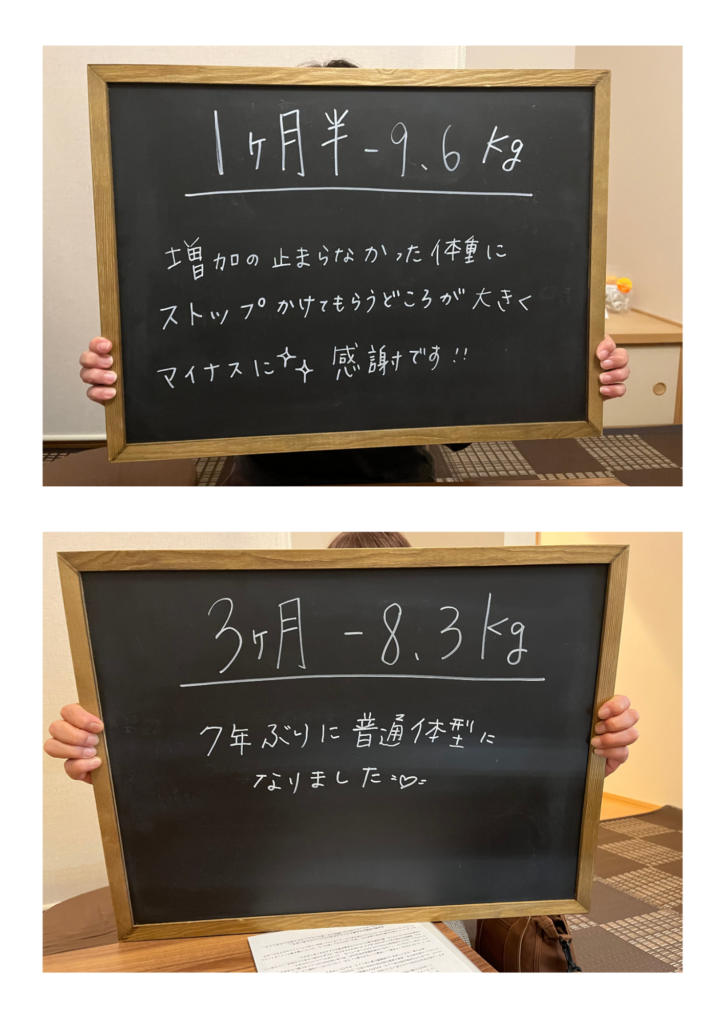 1ヶ月半 -9.6kg
増加の止まらなかった体重に
ストップかけてもらうどころが大きく
マイナスに 感謝です!!
3ヶ月 -8.3kg
7年ぶりに普通体型に
なりました